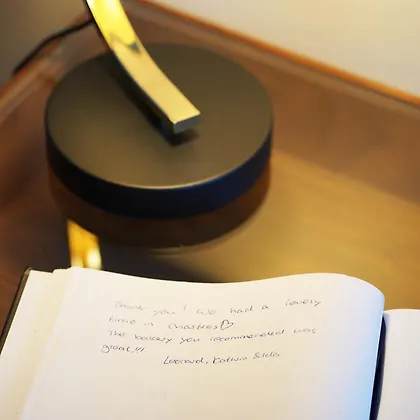 Thank you! We had a lovely
time in Chartres♡
The bakery you recommended was
great!!!
Leonard, Katrin & Ida